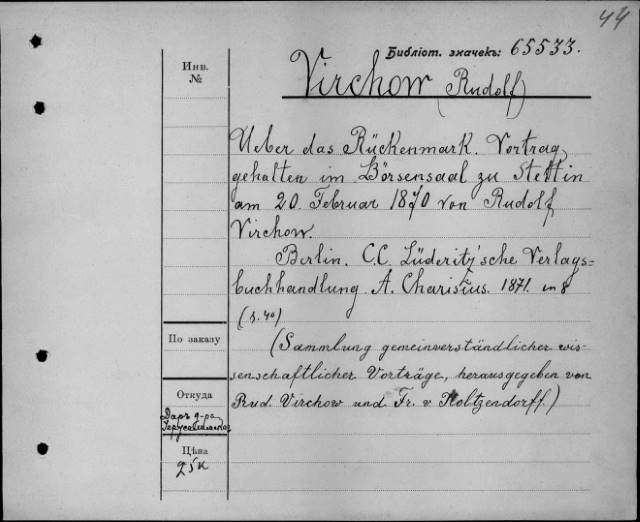 44
Библіот. значекъ: 65533.
Инв.
№
Virchow (Rudolf)
Ueber das Rückenmark. Vortrag,
gehalten im Börsensaal zu Stettin
am 20. Februar 1870 von Rudolf
Virchow.
Berlin. C.C. Lüderitz'sche Verlags=
buchhandlung A. Charisius. 1871. in 8
(s. 40)
По заказу
(Sammlung gemeinverständlicher wis-
senschaftlicher Vorträge, herausgegeben von
Rud. Virchow und Fr. v Holtzendorff.)
Откуда
Даръ д-ра
Цѣна
25к